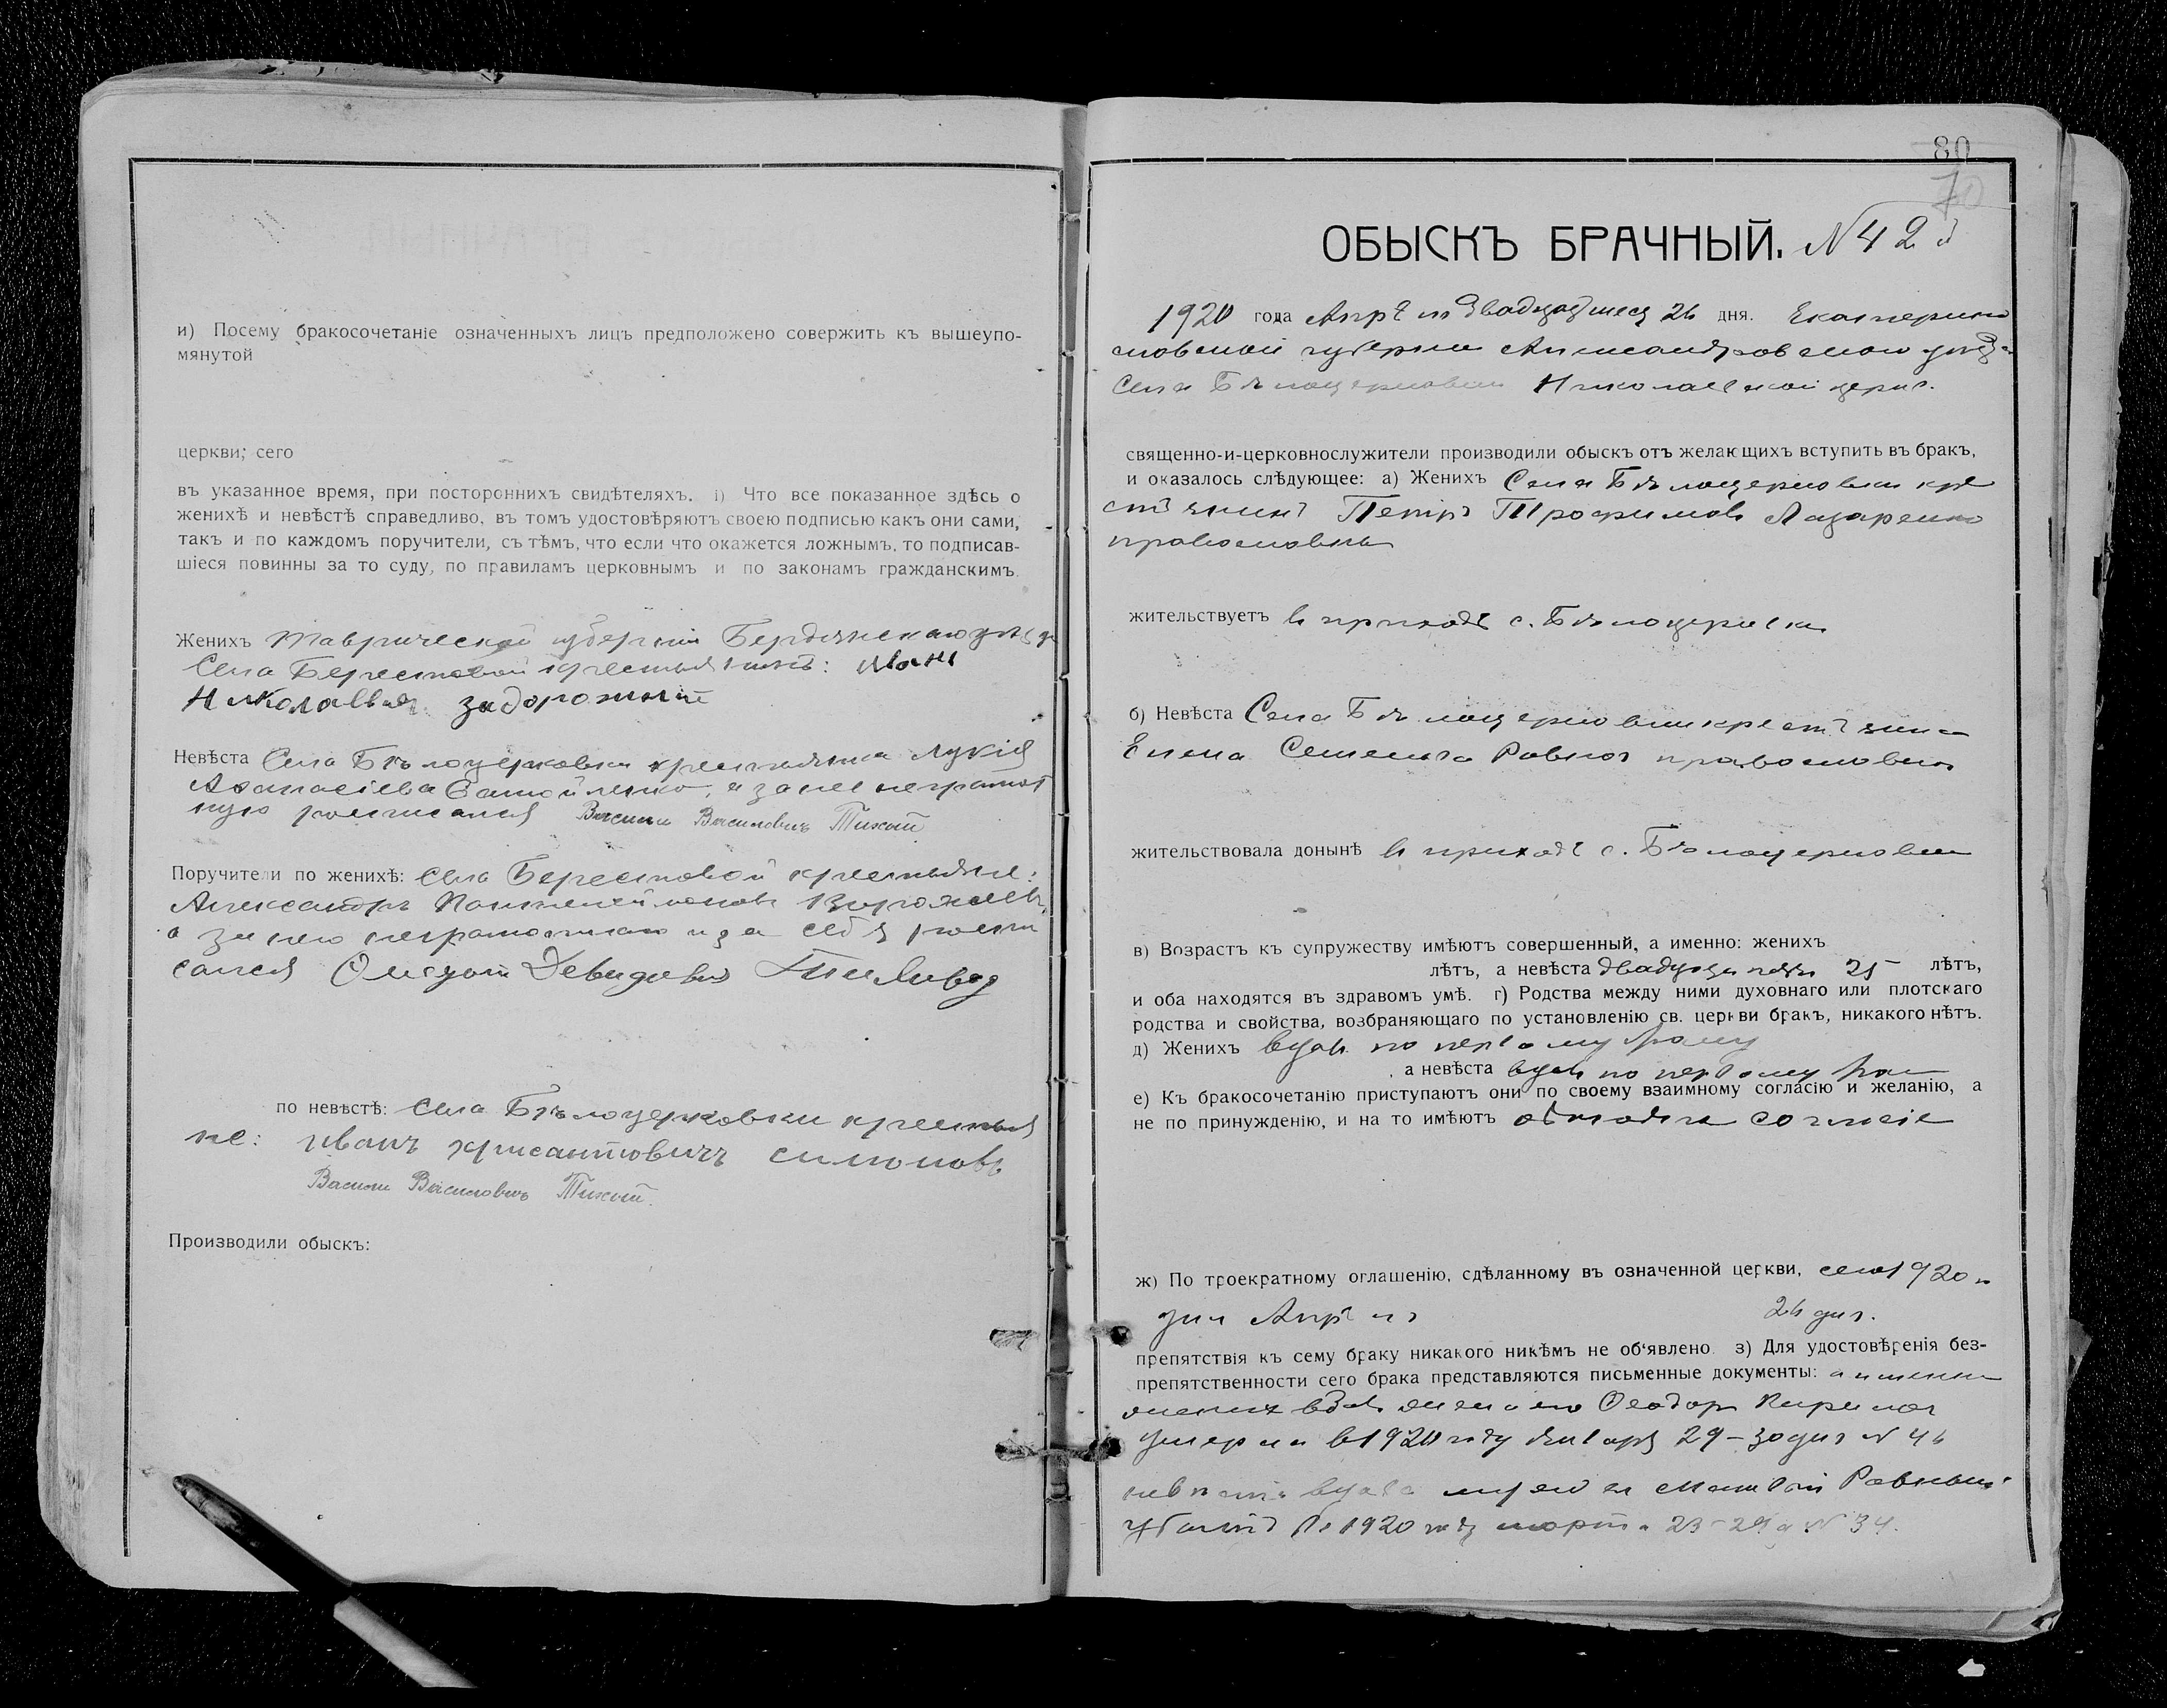 и) Посему бракосочетаніе означенныхъ лицъ предположено совержить къ вышеупо-
мянутой
церкви; сего
въ указанное время, при постороннихъ свидѣтеляхъ. і) Что все показанное здѣсь о
женихѣ и невѣстѣ справедливо, въ томъ удостовѣряютъ своею подписью какъ они сами,
такъ и по каждомъ поручители, съ тѣмъ, что если что окажется ложнымъ, то подписав-
шіеся повинны за то суду, по правиламъ церковнымъ и по законамъ гражданскимъ.
Женихъ Таврической губерніи Бердянскаго уѣзда
Села Берестовой крестьянинъ: Иванъ
Николаевъ задорожній
Невѣста Села Бѣлоцерковки крестьянка Лукія
Афанасіева Самойленко, а за нее неграмот
ную росписался Василий Василовичъ Тихий
Поручители по женихѣ: Села Берестовой крестьяне:
Александръ Пантелеймоновъ
а за него неграмотнаго и за себя роспи
сался Давидовъ
по невѣстѣ: Села Бѣлоцерковки крестья
не: Иванъ хрисантовичъ симоновъ
Василий Василовичъ Тихий.
Производили обыскъ:
80
70
ОБЫСКЪ БРАЧНЫЙ. N 42й
1920 года Апрѣля 26 дня. Екатерино
славской губерніи Александровскаго уѣзда
Села Бѣлоцерковки Николаевской церкв.
священно-и-церковнослужители производили обыскъ отъ желающихъ вступить въ бракъ,
и оказалось слѣдующее: а) Женихъ Села Бѣлоцерковки кре
стьянинъ Петръ Трофимовъ Лазаренко
православный
жительствуетъ в приходѣ с. Бѣлоцерковки
б) Невѣста Села Бѣлоцерковки крестьянка
Елена Семенова Ровная православная
жительствовала донынѣ в приходѣ с. Бѣлоцерковки
в) Возрастъ къ супружеству имѣютъ совершенный, а именно: женихъ
лѣтъ, а невѣста двадцать пять 25 лѣтъ,
и оба находятся въ здравомъ умѣ. г) Родства между ними духовнаго или плотскаго
родства и свойства, возбраняющаго по установленію св. церкви бракъ, никакого нѣтъ.
д) Женихъ вдов. по первому браку
а невѣста вдов по первому бра
е) Къ бракосочетанію приступаютъ они по своему взаимному согласію и желанію, а
не по принужденію, и на то имѣютъ согласіе
ж) По троекратному оглашенію, сдѣланному въ означенной церкви, сего 1920
года Апрѣля 26 дня.
препятствія къ сему браку никакого никѣмъ не об'явлено. з) Для удостовѣренія без-
препятственности сего брака представляются письменные документы: а именно
женихъ вдов жена его
умерла в 1920 году января 29-30 дня N 46
невѣста вдова муж ея Матвей Ровный
убитъ в 1920 году марта 23-24 д N 34.